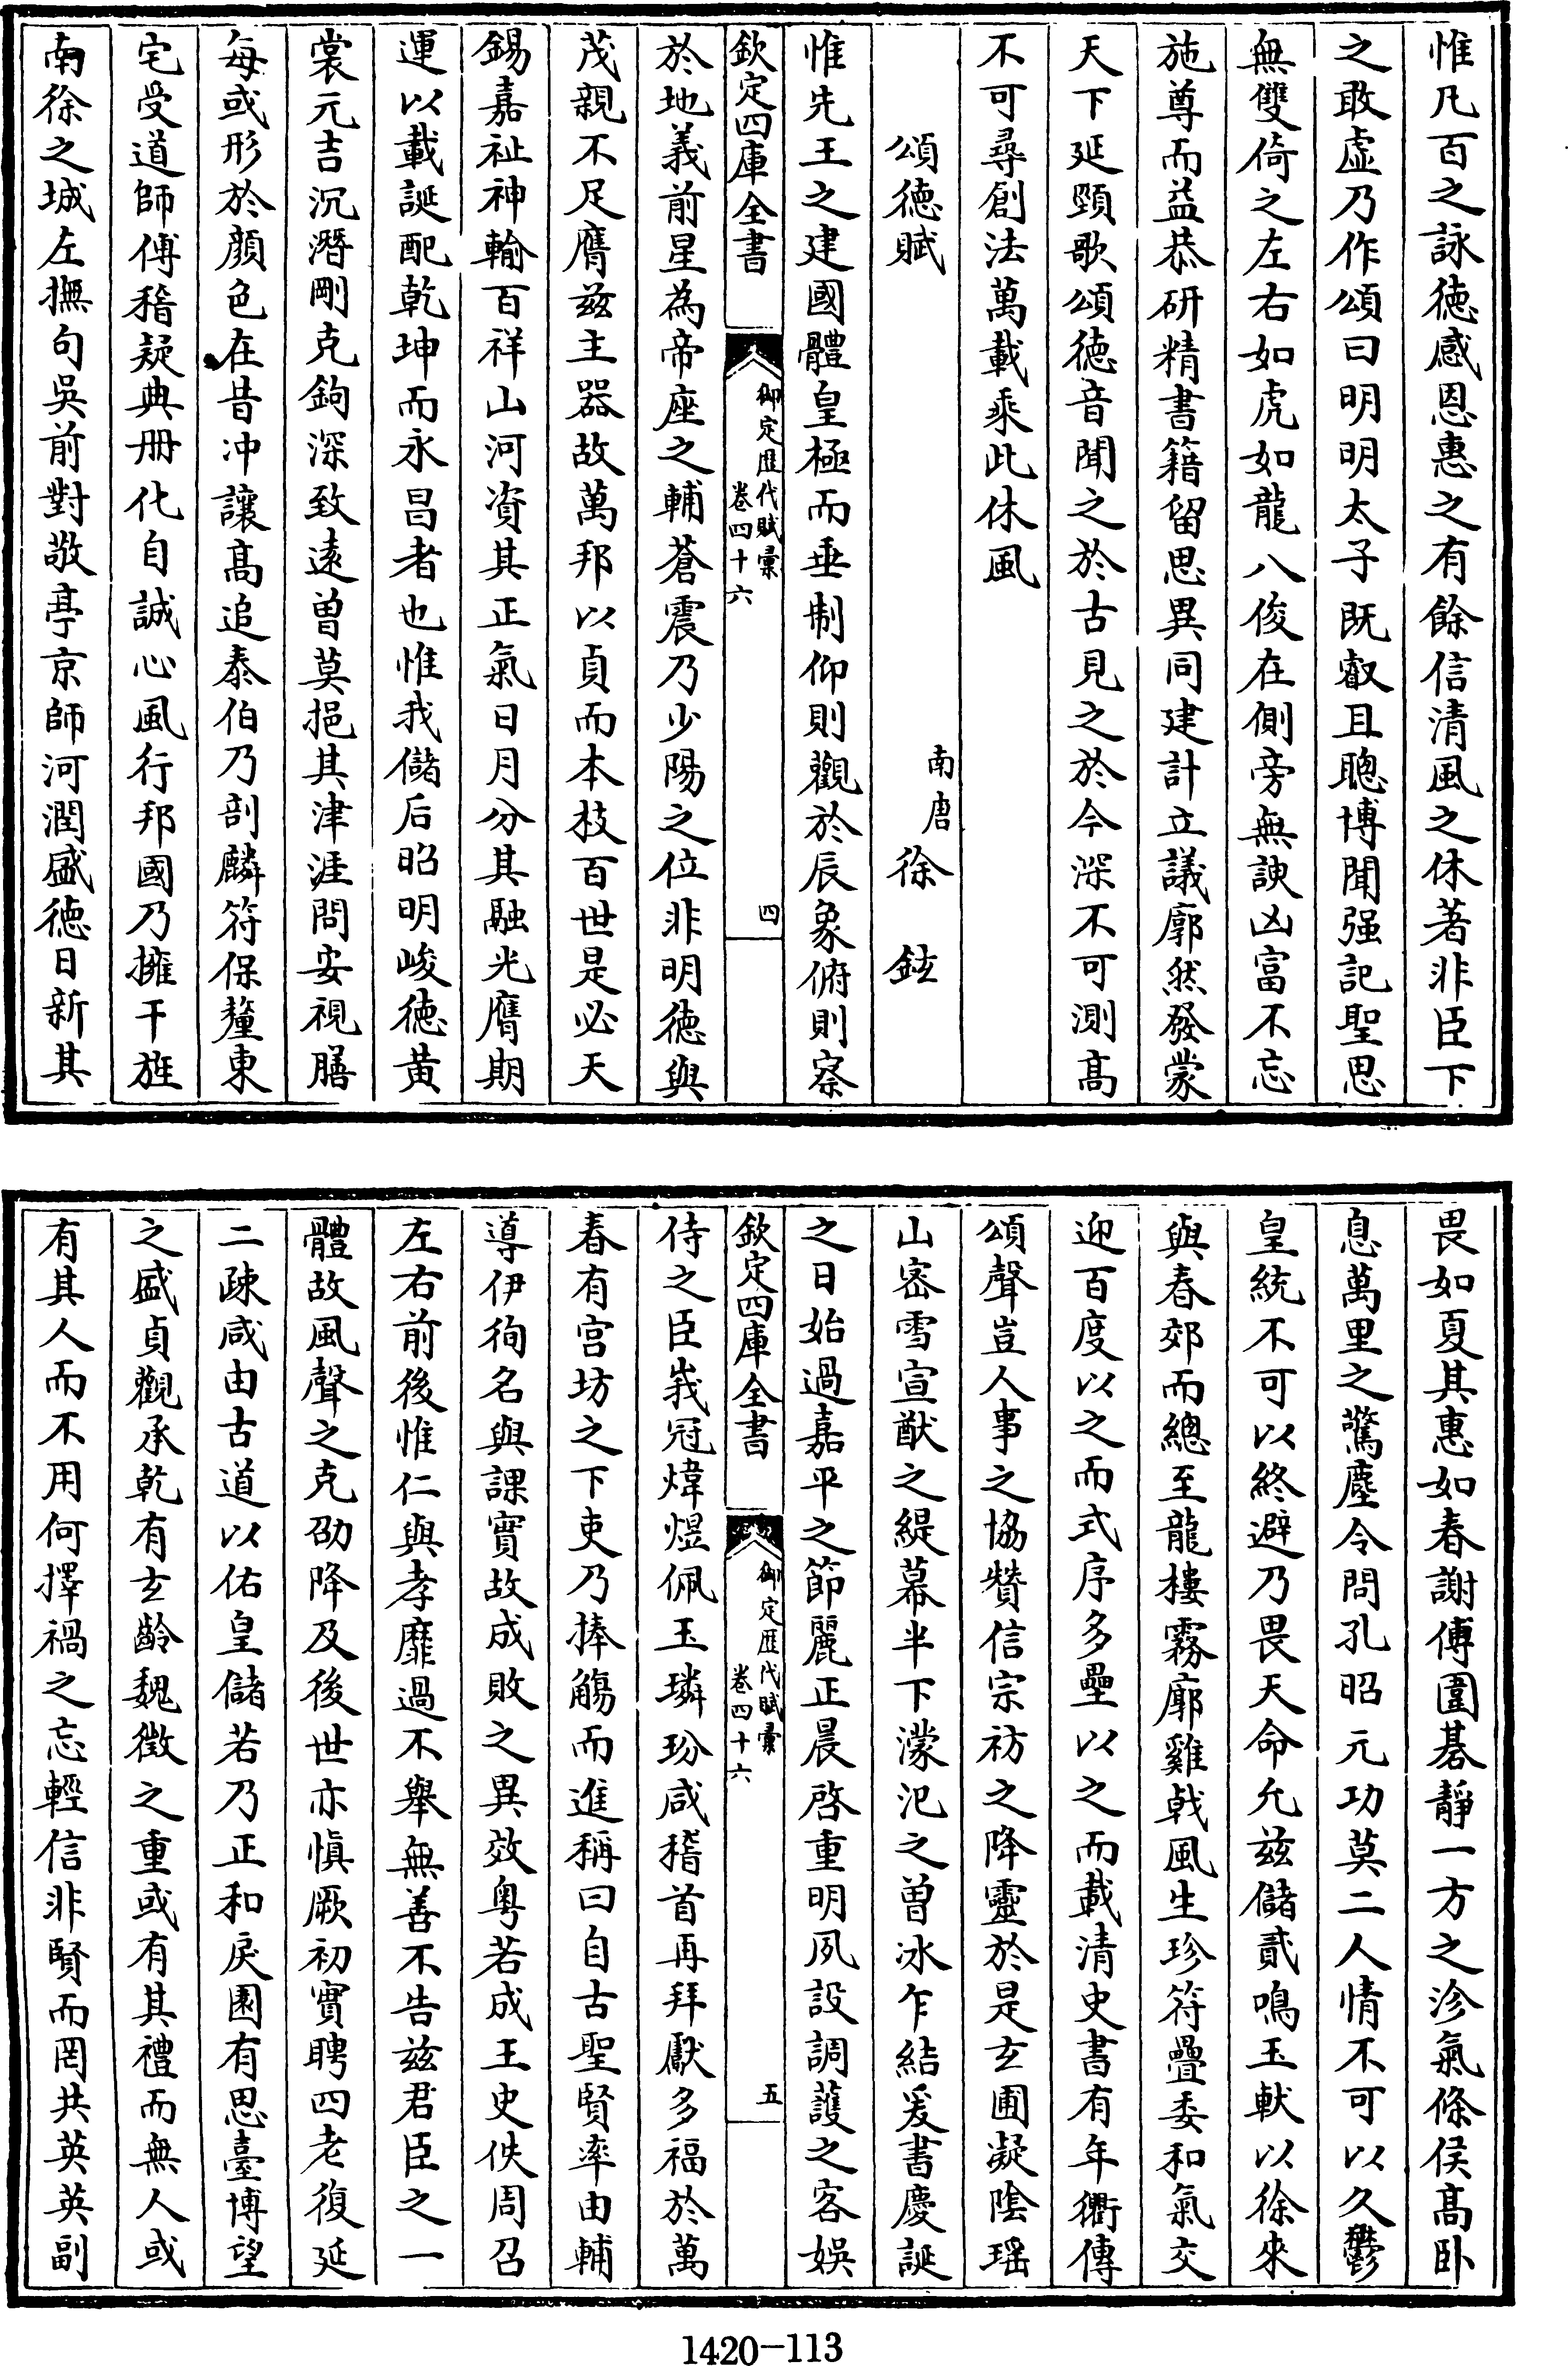 惟凡百之詠徳感恩惠之有餘信清風之休著非臣下
之敢虛乃作頌曰明明太子既叡且聰博聞强記聖思
無雙倚之左右如虎如龍八俊在側旁無諛凶富不忘
施尊而益恭研精書籍留思異同建計立議廓然發蒙
天下延頸歌頌徳音聞之於古見之於今深不可測髙
不可尋創法萬載乘此休風
頌徳賦
南唐徐鉉
惟先王之建國體皇極而垂制仰則觀於辰象俯則察
欽定四庫全書
御定歴代賦彙
卷四十六
四
於地義前星為帝座之輔蒼震乃少陽之位非明徳與
茂親不足膺兹主器故萬邦以貞而本枝百世是必天
錫嘉祉神輸百祥山河資其正氣日月分其融光膺期
運以載誕配乾坤而永昌者也惟我儲后昭明峻徳黄
裳元吉沉潛剛克鉤深致逺曽莫挹其津涯問安視膳
每或形於顔色在昔冲讓髙追泰伯乃剖麟符保釐東
宅受道師傅稽疑典册化自誠心風行邦國乃擁干旌
南徐之城左撫句吳前對敬亭京師河潤盛徳日新其
畏如夏其惠如春謝傅圍碁靜一方之沴氣條侯髙卧
息萬里之驚塵令問孔昭元功莫二人情不可以久鬱
皇統不可以終避乃畏天命允兹儲貳鳴玉軑以徐來
與春郊而總至龍樓霧廓雞㦸風生珍符疊委和氣交
迎百度以之而式序多壘以之而載清史書有年衢傳
頌聲豈人事之協贊信宗祊之降靈於是玄圃凝隂瑶
山宻雪宣猷之緹幕半下濛汜之曽冰乍結爰書慶誕
之日始過嘉平之節麗正晨啓重明夙設調䕶之客娯
欽定四庫全書
御定歴代賦彙
卷四十六
五
侍之臣峩冠煒煜佩玉璘玢咸稽首再拜獻多福於萬
春有宫坊之下吏乃捧觴而進稱曰自古聖賢率由輔
導伊徇名與課實故成敗之異效粤若成王史佚周召
左右前後惟仁與孝靡過不舉無善不告兹君臣之一
體故風聲之克劭降及後世亦愼厥初實聘四老復延
二疎咸由古道以佑皇儲若乃正和戾園有思臺博望
之盛貞觀承乾有玄齡魏徴之重或有其禮而無人或
有其人而不用何擇禍之忘輕信非賢而罔共英英副
1420-113